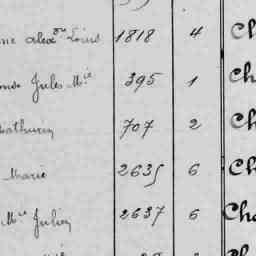 alex^dre Louis 1818 4 Ch
Jules M^ie 395 1 Ch
Mathurin 707 2 Ch
Marie 2635 6 Ch
M^ie Julien 2637 6 Cha